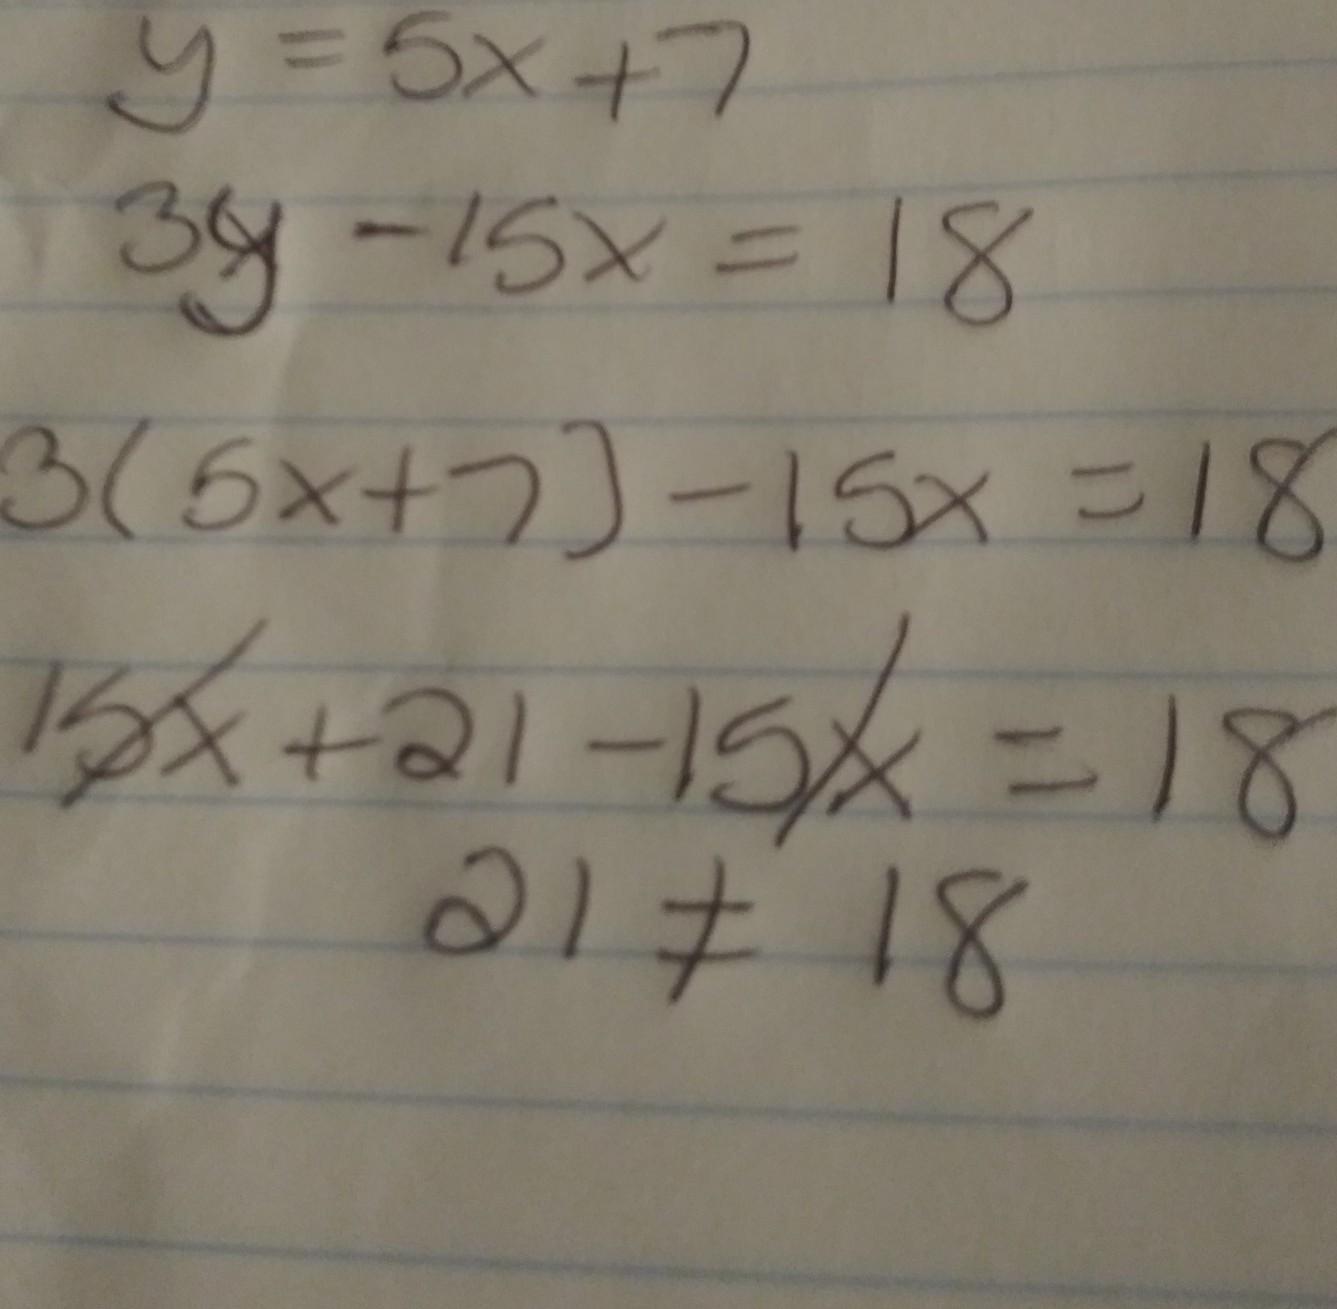 y = 5x + 7
3y - 15x = 18
3(5x+7) - 15x = 18
15x + 21 - 15x = 18
21 ≠ 18